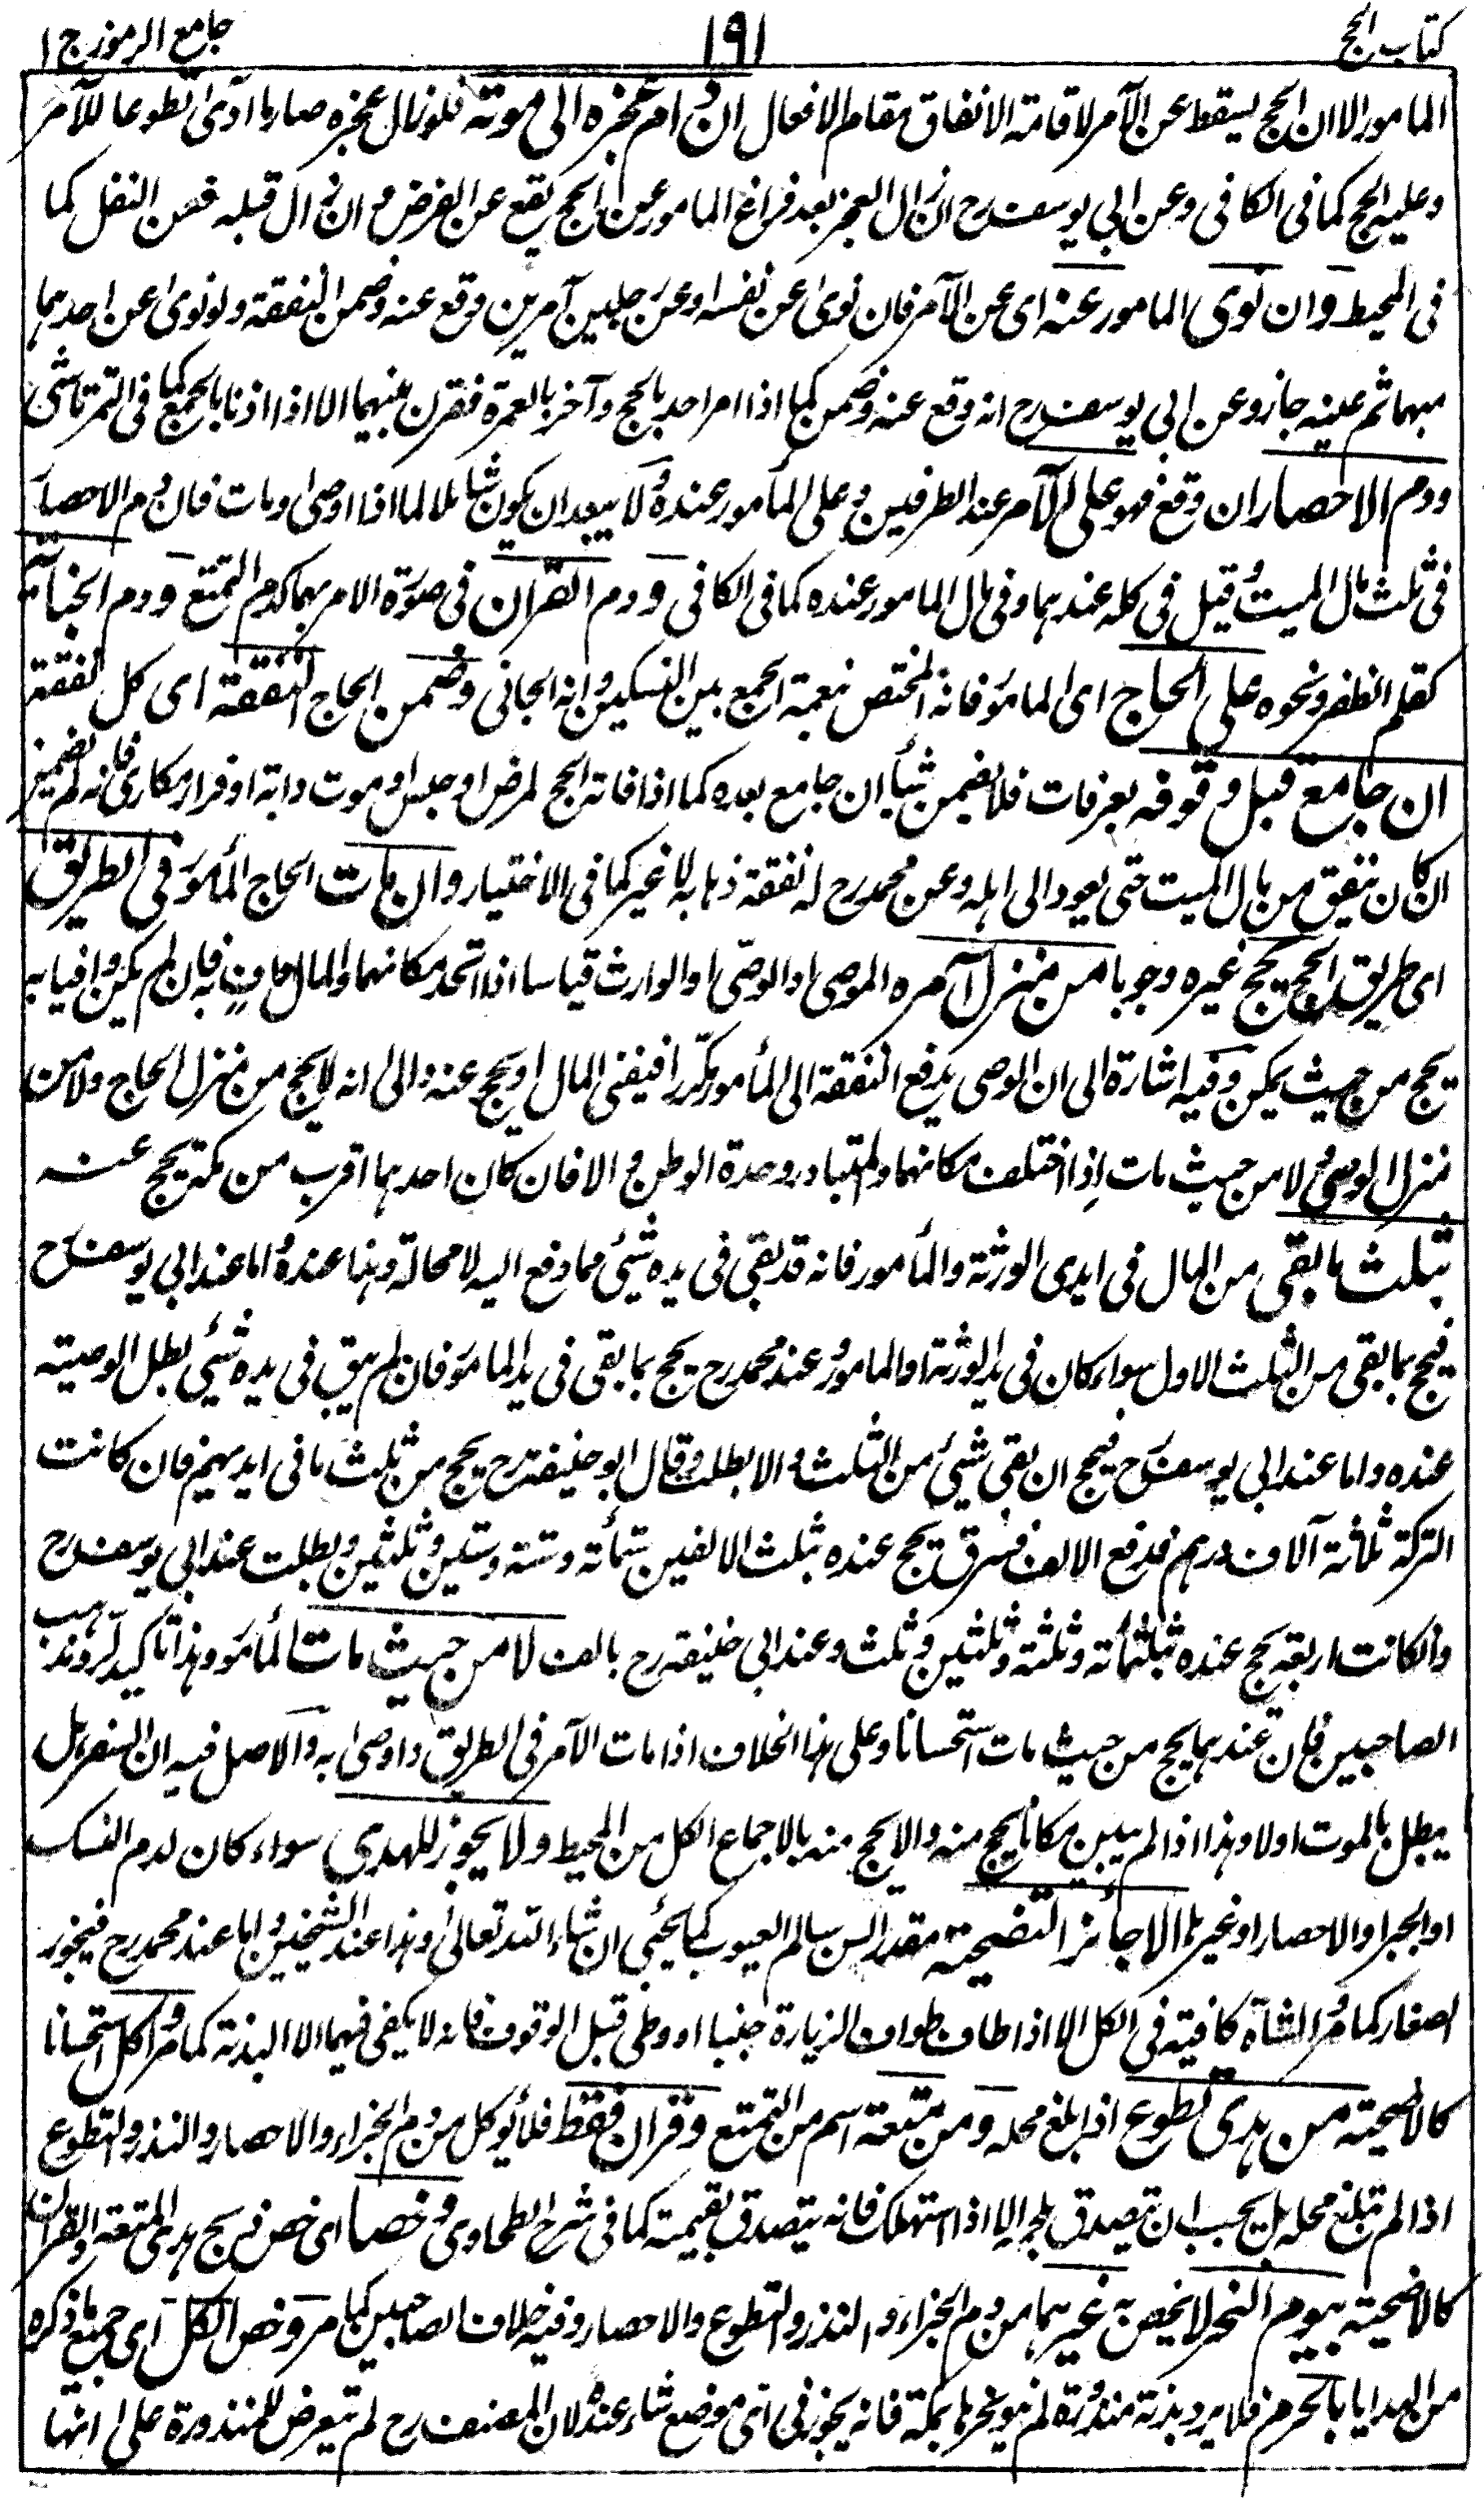 كتاب الحج ١٩١ جامع الرموز ج ١
المامور الا ان الحج يسقط عن الآمر لاقامة الانفاق مقام الافعال ان دام عجزه الى موته فلو زال عجزه صار ما ادى تطوعا للآمر
وعليه الحج كما فى الكافى وعن ابى يوسف رح ان زال العجز بعد فراغ المامور عن الحج يقع عن الفرض وان زال قبله فعن النفل كما
فى المحيط وان نوى المامور عنه اى عن الآمر فان نوى عن نفسه او عن رجلين آمرين وقع عنه وضمن النفقة ولو نوى عن احدهما
مبهما ثم عينه جاز وعن ابى يوسف رح انه وقع عنه وضمن كما اذا امر احد بالحج وآخر بالعمرة فقرن بينهما الا اذا اذنا بالجمع كما فى التمرتاشى
ودم الاحصار ان وقع فهو على الآمر عند الطرفين وعلى المأمور عنده ولا يبعد ان يكون شاملا لما اذا اوصى ومات فان دم الاحصار
فى ثلث مال الميت وقيل فى كله عندهما وفى مال المامور عنده كما فى الكافى ودم القران فى صورة الامر بهما كدم التمتع ودم الجناية
كقلم الظفر ونحوه على الحاج اى المامور فانه المختص بنعمة الجمع بين النسكين وانه الجانى وضمن الحاج النفقة اى كل نفقة
ان جامع قبل وقوفه بعرفات فلا يضمن شيأ ان جامع بعده كما اذا فاته الحج لمرض او حبس او موت دابة او فرار مكارى فانه لم يضمن
ان كان ينفق من مال الميت حتى يعود الى اهله وعن محمد رح له نفقة ذهابه لا غير كما فى الاختيار وان مات الحاج المأمور فى الطريق
اى طريق الحج يحج غيره وجوبا من منزل آمره الموصى او الوصى او الوارث قياسا اذا اتحد مكانهما والمال واف به فان لم يكن وافيا به
يحج من حيث يمكن وفيه اشارة الى ان الوصى يدفع النفقة الى المأمور مكررا فيفنى المال او يحج عنه والى انه لا يحج من منزل الحاج ولا من
منزل الوصى ولا من حيث مات اذا اختلف مكانهما والمتبادر وحدة الوطن والا فان كان احدهما اقرب من مكة يحج عنه
بثلث ما بقى من المال فى ايدى الورثة والمأمور فانه قد يبقى فى يده شئى مما دفع اليه لا محالة وهذا عنده واما عند ابى يوسف رح
فيحج بما بقى من الثلث الاول سواء كان فى يد الورثة او المامور وعند محمد رح يحج بما بقى فى يد المامور فان لم يبق فى يده شئى بطل الوصية
عنده واما عند ابى يوسف رح فيحج ان بقى شئى من الثلث والا بطلت وقال ابو حنيفة رح يحج من ثلث ما فى ايديهم فان كانت
التركة ثلثة آلاف درهم فدفع الالف فسرق يحج عنده بثلث الالفين ستمأة وستة وستين وثلثين وبطلت عند ابى يوسف رح
وان كانت اربعة يحج عنده بثلثمأة وثلثة وثلثين وثلث وعند ابى حنيفة رح بالف لا من حيث مات المأمور وهذا تاكيد لرد مذهب
الصاحبين فان عندهما يحج من حيث مات استحسانا وعلى هذا الخلاف اذا مات الآمر فى الطريق واوصى به والاصل فيه ان السفر هل
يبطل بالموت اولا وهذا اذا لم يبين مكانا يحج منه والا يحج منه بالاجماع الكل من المحيط ولا يجوز للهدى سواء كان لدم النسك
او الجبر او الاحصار او غيرها الا جائز التضحية مقدر السن سالم العيوب كما يجئى ان شاء الله تعالى وهذا عند الشيخين واما عند محمد رح فيجوز
الصغار كما مر والشاة كافية فى الكل الا اذا طاف طواف الزيارة جنبا او وطى قبل الوقوف فانه لا يكفى فيهما الا البدنة كما مر واكل استحسانا
كالاضحية من هدى تطوع اذا بلغ محله ومن متعة اسم من التمتع وقران فقط فلا يؤكل من دم الجزاء والاحصار والنذر والتطوع
اذا لم تبلغ محله بل يجب ان تصدق بلحمه الا اذا استهلك فانه يتصدق بقيمته كما فى شرح الطحاوى وخصا اى خص ذبح هدى المتعة والقران
كالاضحية بيوم النحر لا يخص به غيرهما من دم الجزاء والنذر والتطوع والاحصار وفيه خلاف الصاحبين كما مر وخص الكل اى جميع ما ذكره
من الهدايا بالحرم فلا يرد بدنة منذورة لم ينو نحرها بمكة فانه يجوز فى اى موضع شاء عنده لان المصنف رح لم يتعرض للمنذورة على انها